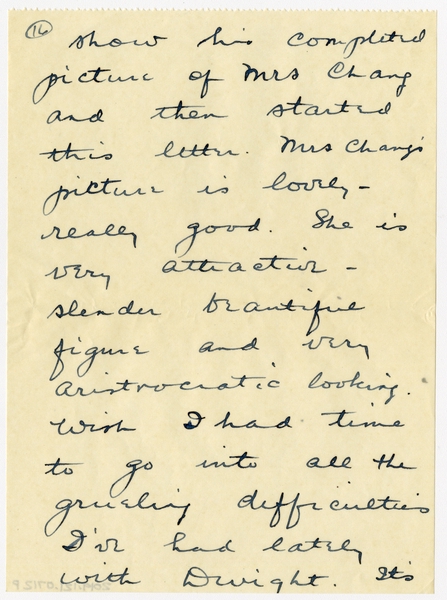 16
show his completed
picture of Mrs Chang
and then started
this letter. Mrs Chang's
picture is lovely -
really good. She is
very attractive -
slender beautiful
figure and very
aristrocratic looking.
Wish I had time
to go into all the
grueling difficulties
I've had lately
with Dwight. It's